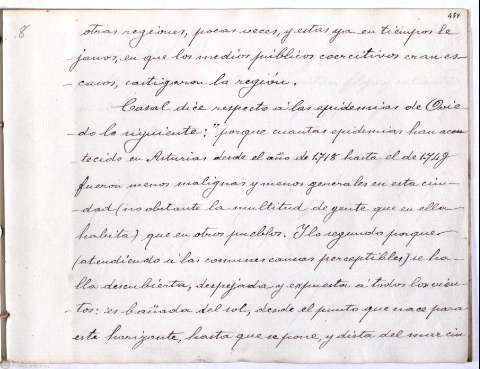 8
484
otras regiones, pocas veces, y estas ya en tiempos le-
janos, en que los medios públicos coercitivos eran es-
casos, castigaron la región.
Casal dice respecto á las epidemias de Ovie-
do lo siguiente: "porque cuantas epidemias han acon-
tecido en Asturias desde el año de 1718 hasta el de 1749
fueron menos malignas y menos generales en esta ciu-
dad (no obstante la multitud de gente que en ella
habita) que en otros pueblos. Y lo segundo porque
(atendiendo á las comunes causas perceptibles) se ha-
lla descubierta, despejada y expuesta á todos los vien-
tos: es bañada del sol, desde el punto que nace para
este horizonte, hasta que se pone, y dista del mar cin